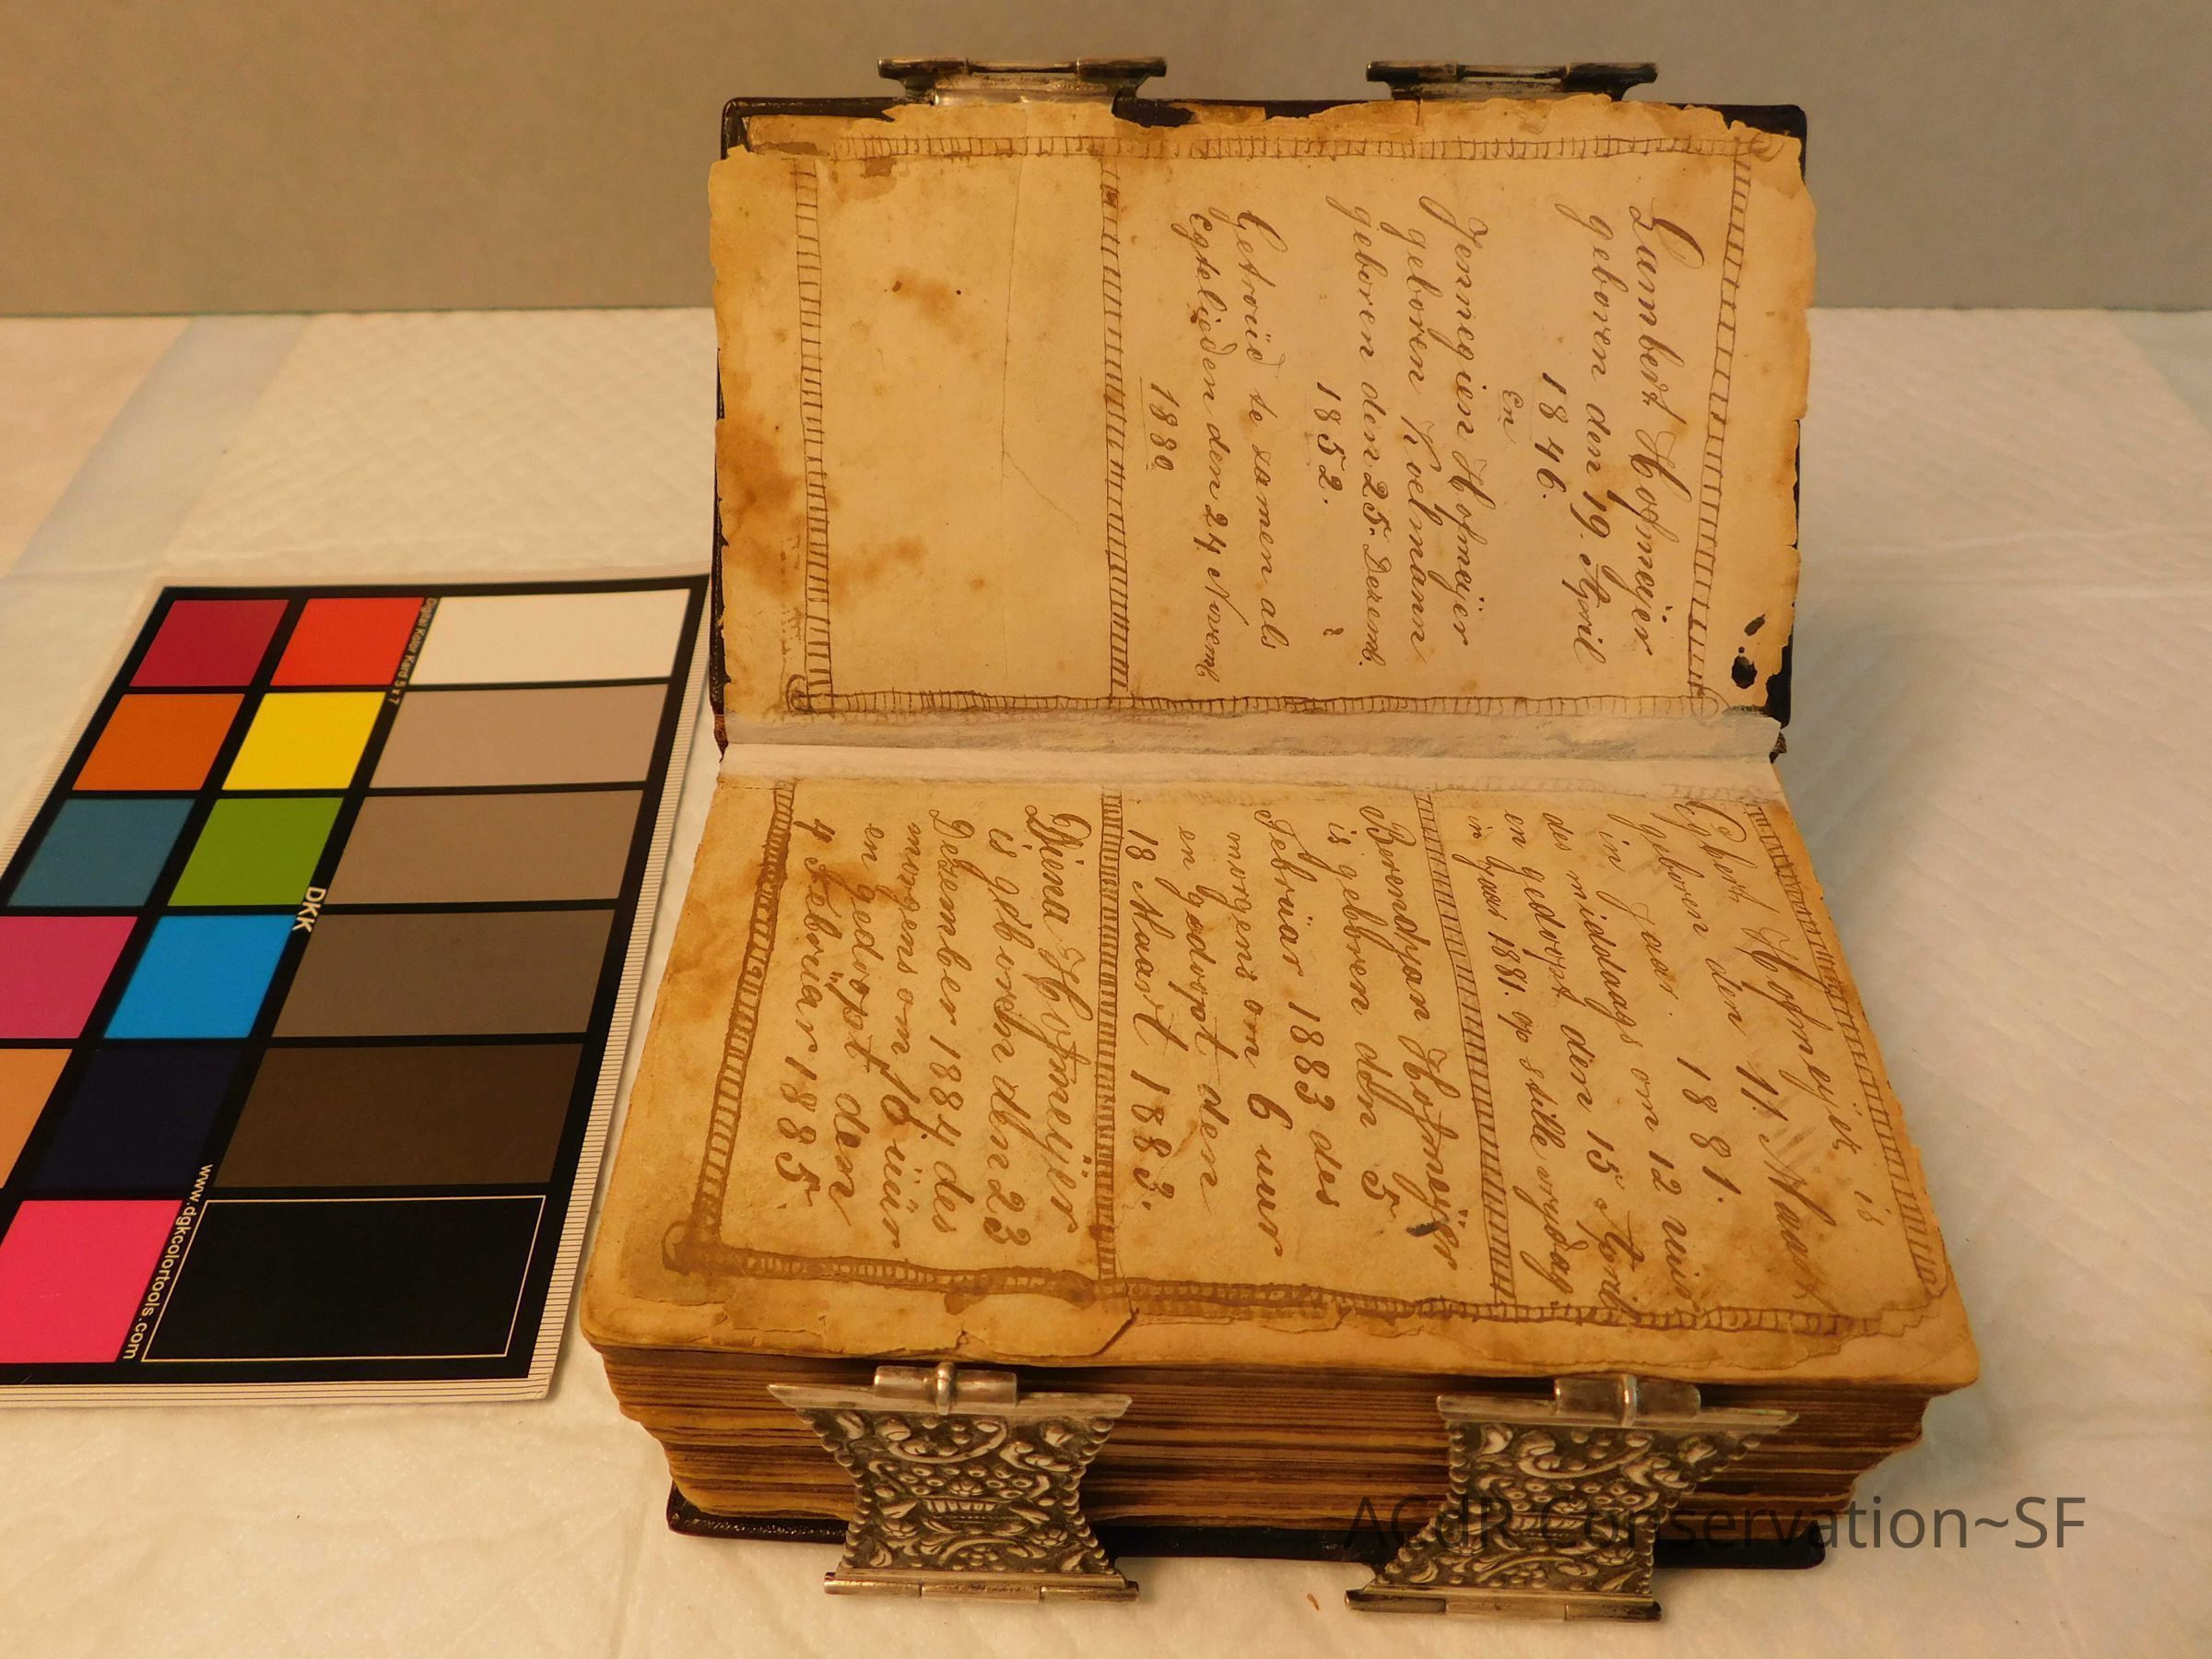 Lambert Hofmeijer
geboren den 19. April
1846.
En
Jennegien Hofmeijer
geboren Koelmann
geboren den 25. Dezemb.
1852.
Getroud te zamen als
Egtelieden den 24 Novemb
1880
Egbert Hofmeijer is
geboren den 11. Maart
in Jaar 1881.
des middags om 12 uur
en gedoopt den 15 April
in Jaar 1881. op stille vrydag
Berendjan Hofmeijer
is geboren den 5
Februar 1883 des
morgens om 6 uur
en gedoopt den
18 Maart 1883.
Djina Hofmeijer
is geboren den 23
Desember 1884 des
morgens om 6 uur
en gedoopt den
4 Februar 1885.
Digital Kolor Kard 5 x 7
DKK
www.dgkcolortools.com
ACdR Conservation~SF